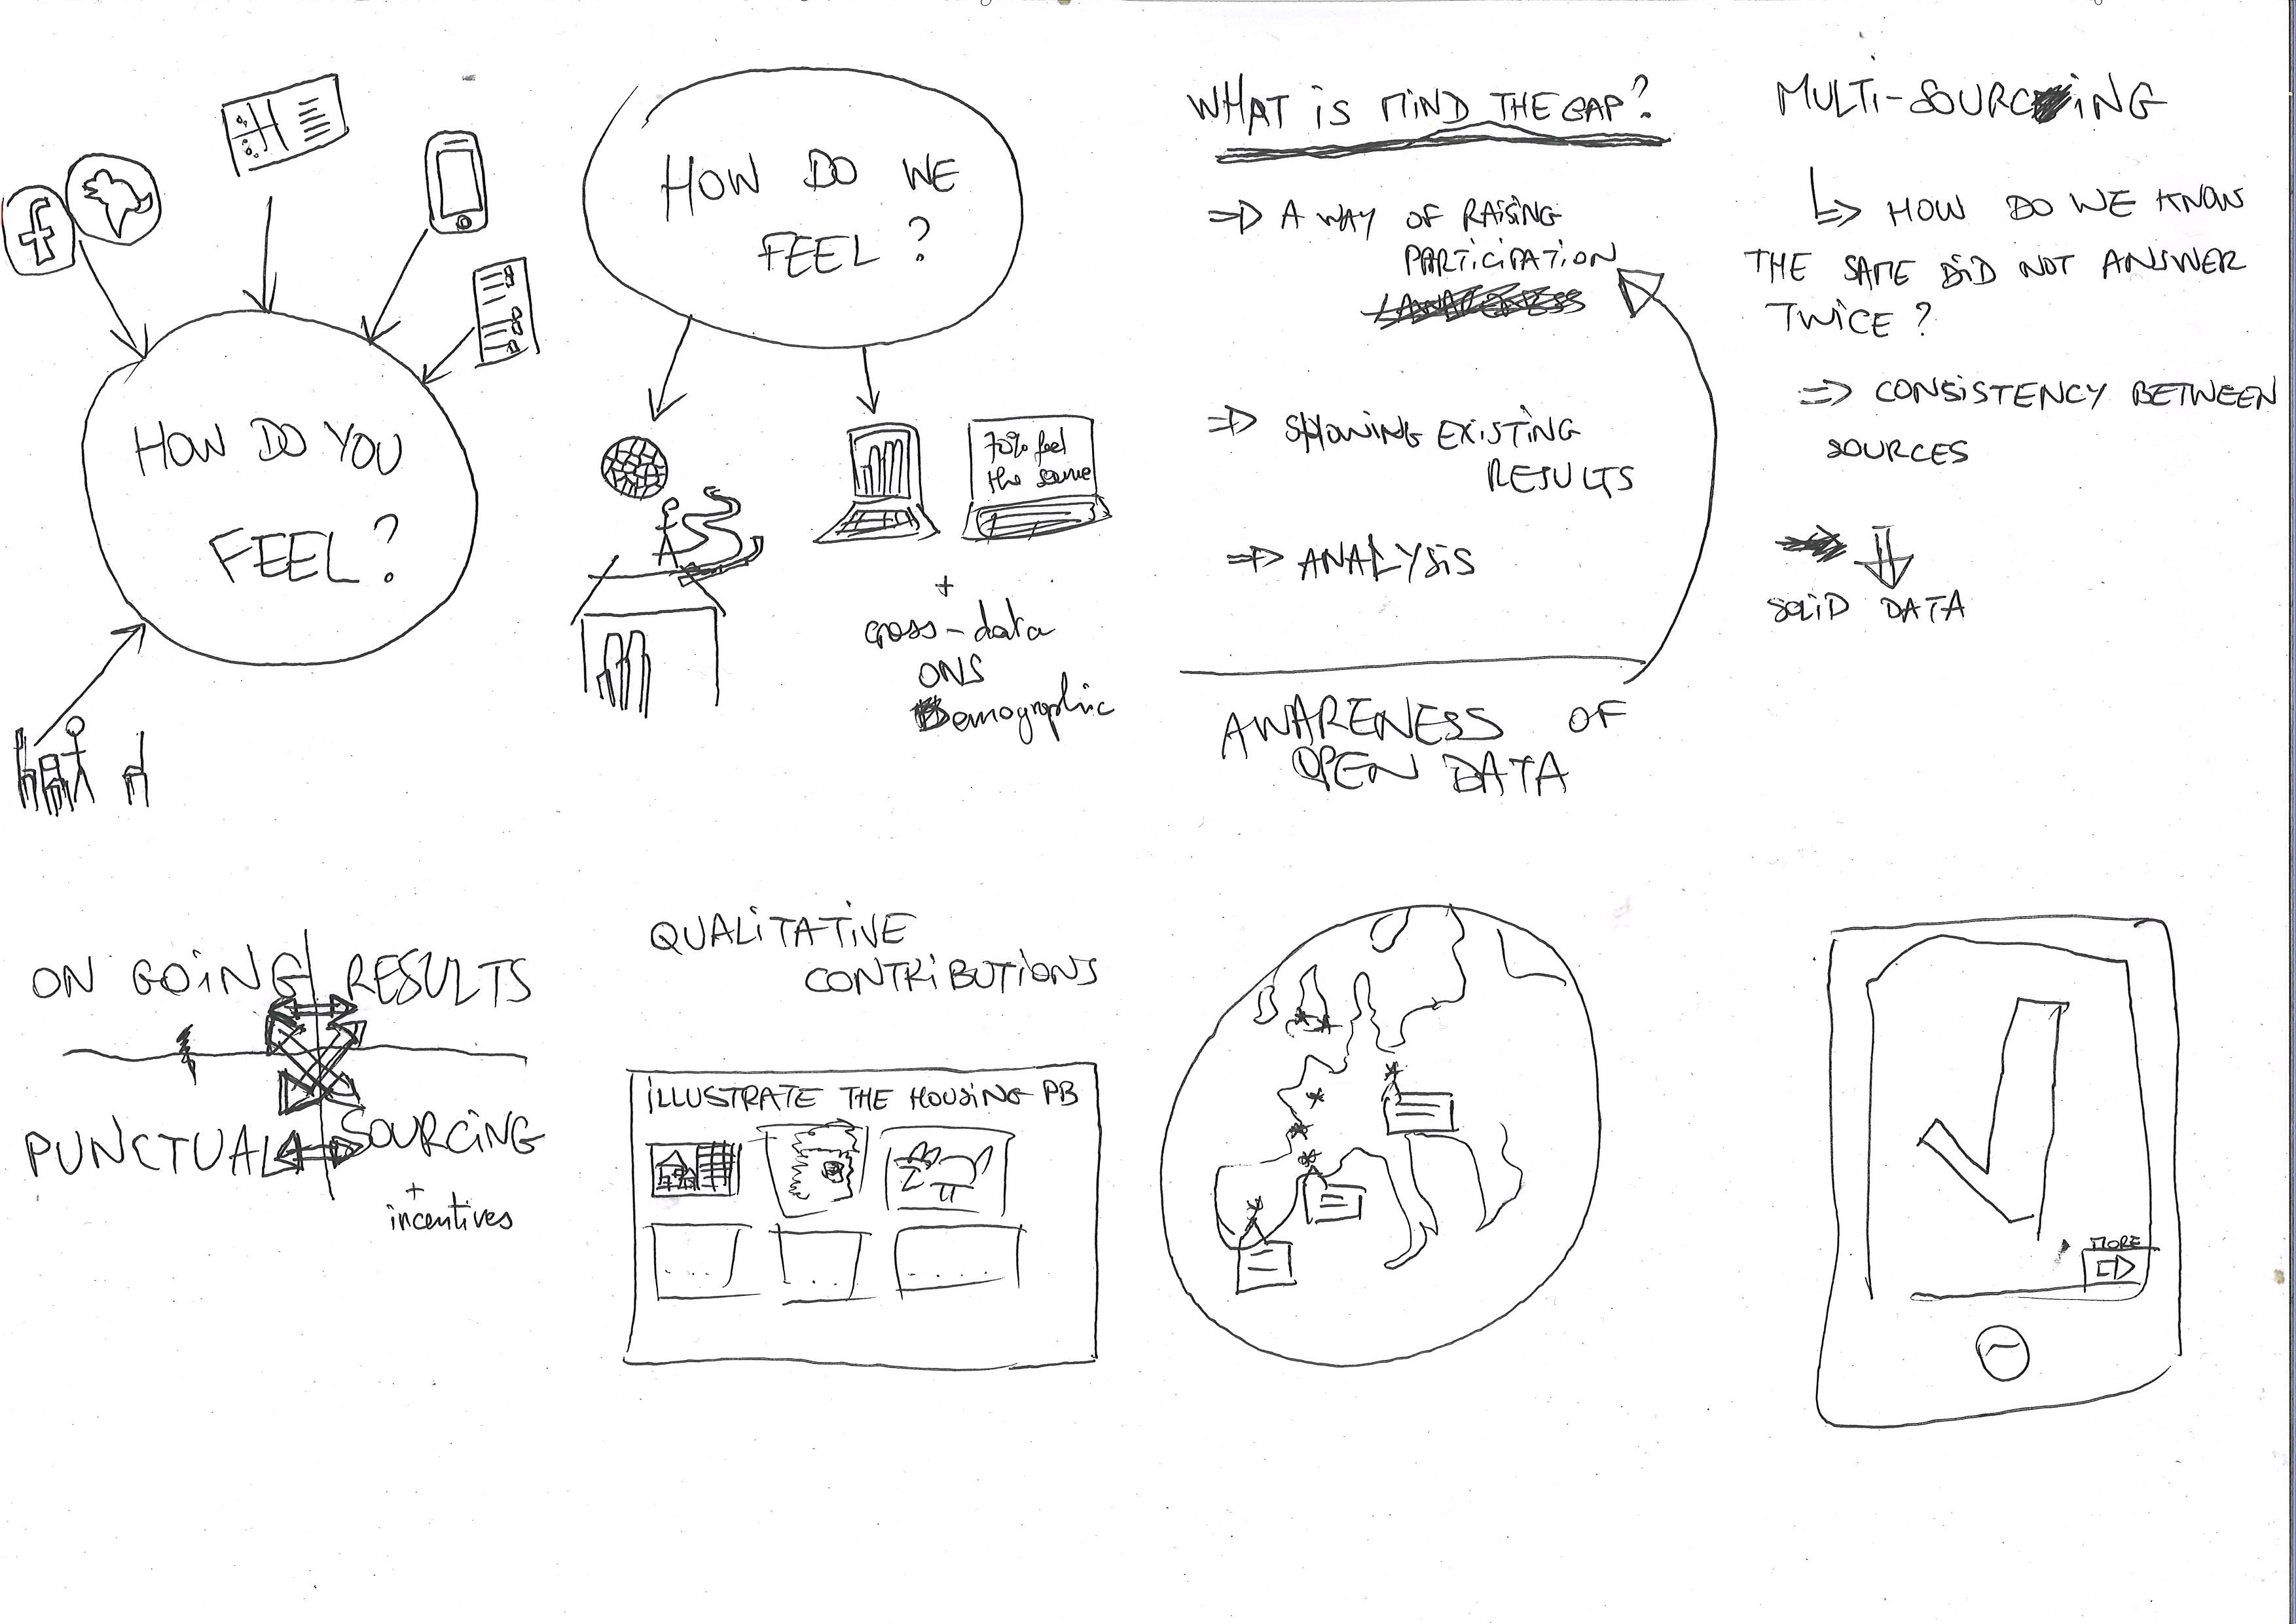 HOW DO YOU
FEEL?
HOW DO WE
FEEL?
70% feel
the same
+
cross-data
ONS
Demographic
WHAT iS MIND THE GAP?
=> A WAY OF RAiSiNG
PARTiCiPATiON
=> SHOWiNG EXiSTiNG
RESULTS
=> ANALYSiS
AWARENESS OF
OPEN DATA
MULTi-SOURCiNG
HOW DO WE KNOW
THE SAME DiD NOT ANSWER
TWiCE?
=> CONSiSTENCY BETWEEN
SOURCES
SOLiD DATA
ON GOiNG RESULTS
PUNCTUAL SOURCiNG
+
incentives
QUALiTATiVE
CONTRiBUTiONS
iLLUSTRATE THE HOUSiNG PB
MORE